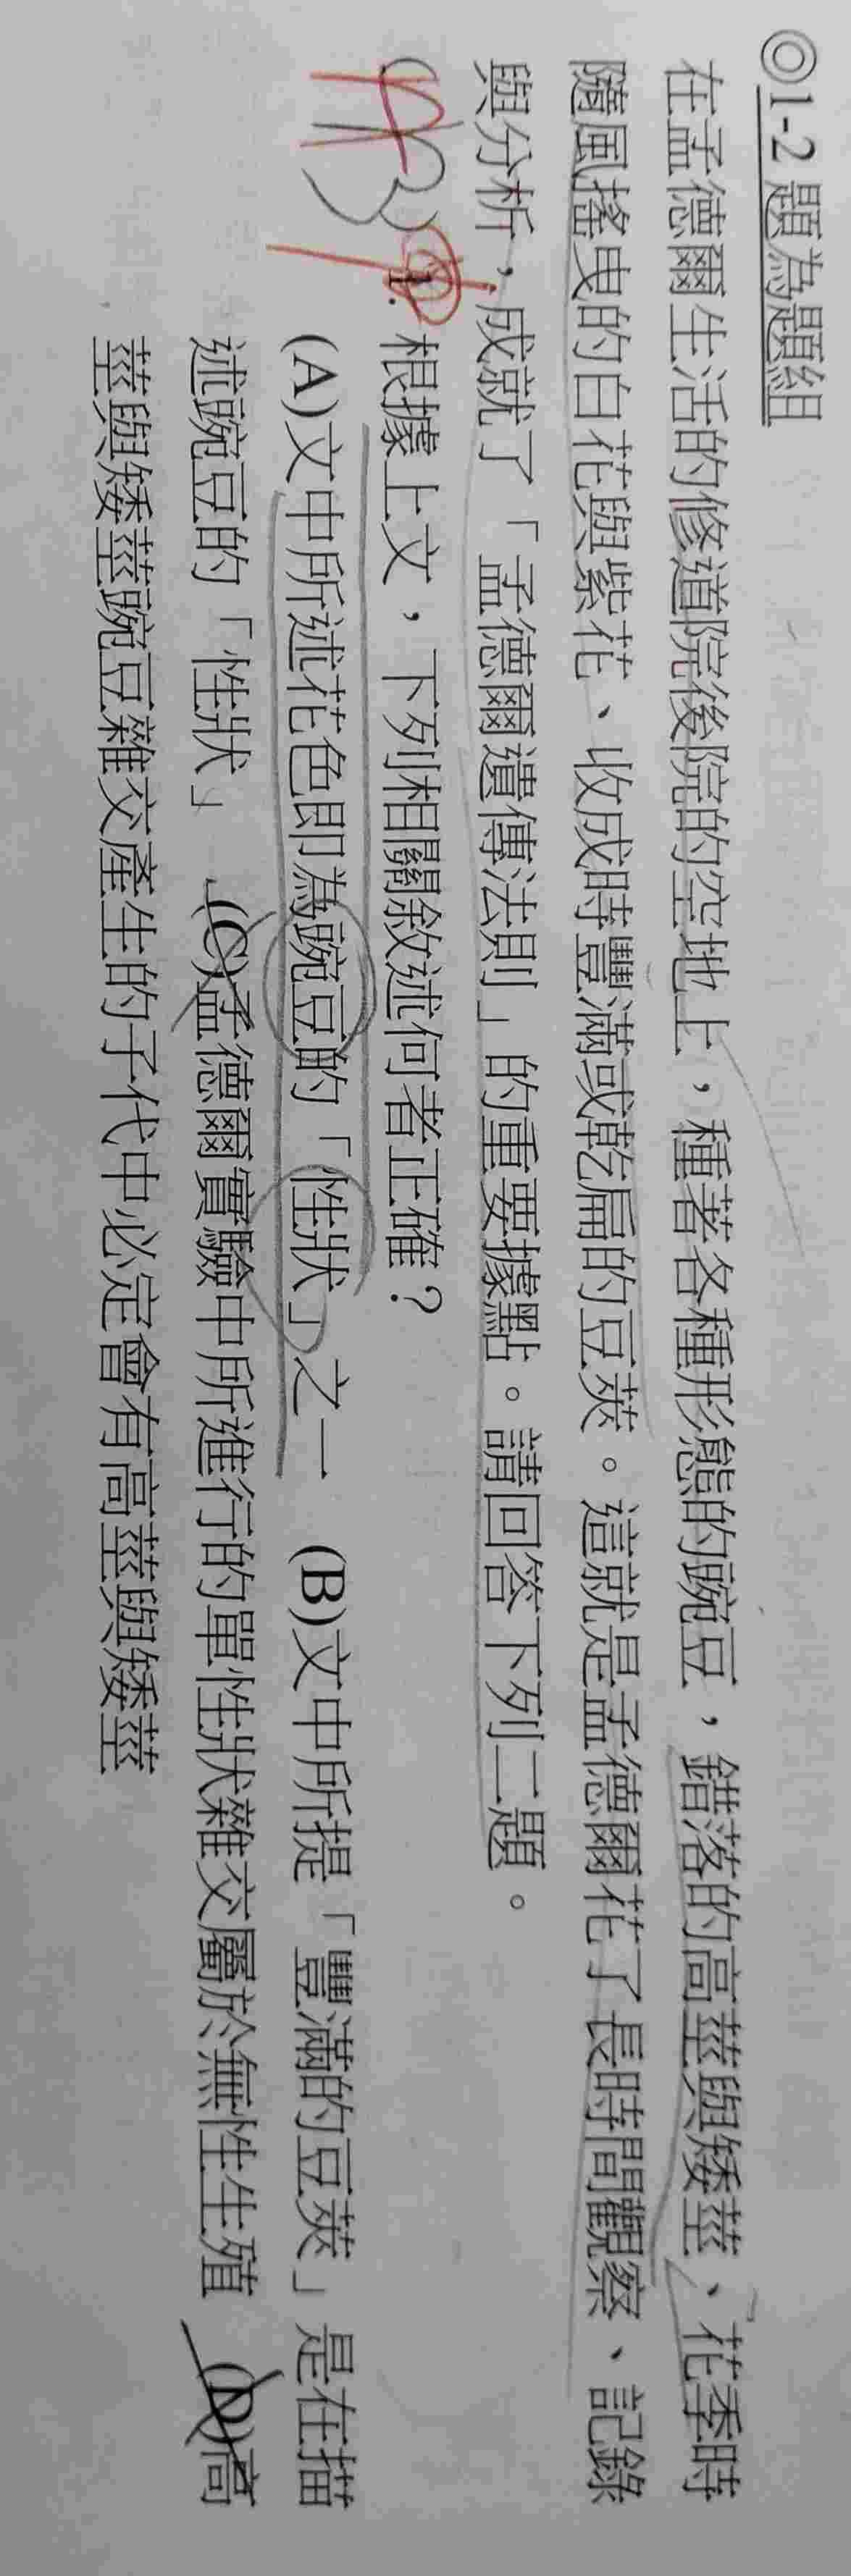 ◎1-2 題為題組
在孟德爾生活的修道院後院的空地上，種著各種形態的豌豆，錯落的高莖與矮莖、花季時
隨風搖曳的白花與紫花、收成時豐滿或乾扁的豆莢。這就是孟德爾花了長時間觀察、記錄
與分析，成就了「孟德爾遺傳法則」的重要據點。請回答下列二題。
( )1. 根據上文，下列相關敘述何者正確？
(A)文中所述花色即為豌豆的「性狀」之一 (B)文中所提「豐滿的豆莢」是在描
述豌豆的「性狀」 (C)孟德爾實驗中所進行的單性狀雜交屬於無性生殖 (D)高
莖與矮莖豌豆雜交產生的子代中必定會有高莖與矮莖